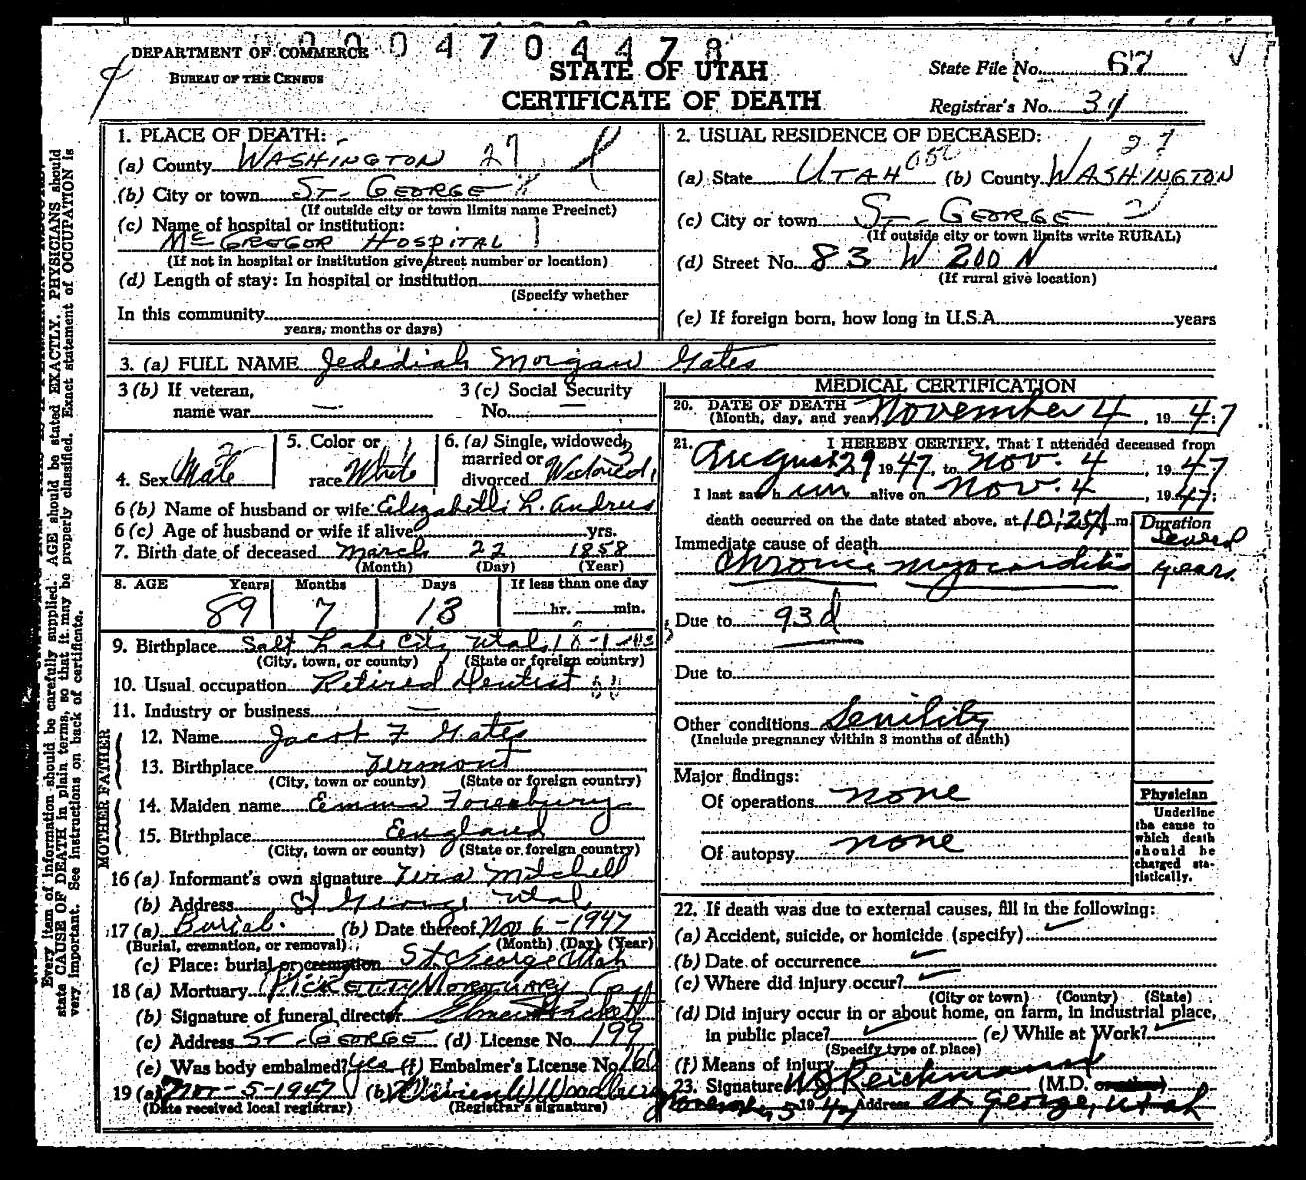 0000 4704478
DEPARTMENT OF COMMERCE
BUREAU OF THE CENSUS
STATE OF UTAH
CERTIFICATE OF DEATH
State File No. 67
Registrar's No. 31
Every item of information should be carefully supplied. AGE should be stated EXACTLY. PHYSICIANS should
state CAUSE OF DEATH in plain terms, so that it may be properly classified. Exact statement of OCCUPATION is
very important. See instructions on back of certificate.
1. PLACE OF DEATH:
(a) County WASHINGTON 27
(b) City or town ST. GEORGE
(If outside city or town limits name Precinct)
(c) Name of hospital or institution:
McGREGOR HOSPITAL
(If not in hospital or institution give street number or location)
(d) Length of stay: In hospital or institution
(Specify whether
In this community
years, months or days)
2. USUAL RESIDENCE OF DECEASED: 27
(a) State UTAH 052 (b) County WASHINGTON
(c) City or town ST. GEORGE
(If outside city or town limits write RURAL)
(d) Street No. 83 W 200 N
(If rural give location)
(e) If foreign born, how long in U.S.A. years
3. (a) FULL NAME Jedediah Morgan Gates
3 (b) If veteran,
name war —
3 (c) Social Security
No. —
4. Sex Male
5. Color or
race White
6. (a) Single, widowed,
married or
divorced Widowed
6 (b) Name of husband or wife Elizabeth L. Andrus
6 (c) Age of husband or wife if alive yrs.
7. Birth date of deceased March 22 1858
(Month) (Day) (Year)
8. AGE Years Months Days If less than one day
89 7 13 hr. min.
9. Birthplace Salt Lake City Utah
(City, town, or county) (State or foreign country)
10. Usual occupation Retired Dentist
11. Industry or business —
FATHER
12. Name Jacob F Gates
13. Birthplace Vermont
(City, town or county) (State or foreign country)
MOTHER
14. Maiden name Emma Forsbury
15. Birthplace England
(City, town or county) (State or foreign country)
16 (a) Informant's own signature Vera Mitchell
(b) Address St George Utah
17 (a) Burial (b) Date thereof Nov 6-1947
(Burial, cremation, or removal) (Month) (Day) (Year)
(c) Place: burial or cremation St. George Utah
18 (a) Mortuary PICKETT MORTUARY
(b) Signature of funeral director Pickett
(c) Address ST. GEORGE (d) License No. 199
(e) Was body embalmed? yes (f) Embalmer's License No. 160
19 (a) Nov-5-1947 (b) Vivien W Woodbury
(Date received local registrar) (Registrar's signature)
MEDICAL CERTIFICATION
20. DATE OF DEATH November 4, 1947
(Month, day, and year)
21. I HEREBY CERTIFY, That I attended deceased from
August 29 1947, to Nov. 4, 1947
I last saw him alive on Nov. 4, 1947;
death occurred on the date stated above, at 10:25A m.
Duration
Immediate cause of death
Chronic myocarditis
Several
years.
Due to 93d
Due to
Other conditions Senility
(Include pregnancy within 3 months of death)
Major findings:
Of operations none
Of autopsy none
Physician
Underline
the cause to
which death
should be
charged sta-
tistically.
22. If death was due to external causes, fill in the following:
(a) Accident, suicide, or homicide (specify)
(b) Date of occurrence
(c) Where did injury occur?
(City or town) (County) (State)
(d) Did injury occur in or about home, on farm, in industrial place,
in public place? (e) While at Work?
(Specify type of place)
(f) Means of injury
23. Signature W J Reichmann (M.D. or other)
November 5 1947 Address St George, Utah